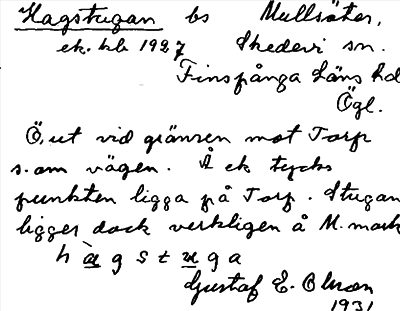 Hagstugan bs Mullsäter,
ek. kb 1927 Skedevi sn.
Finspånga läns hd
Ögl.
Ö. ut vid gränsen mot Torp
s. om vägen. Å ek tycks
punkten ligga på Torp. Stugan
ligger dock verkligen å M. mark
h à g s t u g a
Gustaf E. Olsson
1931